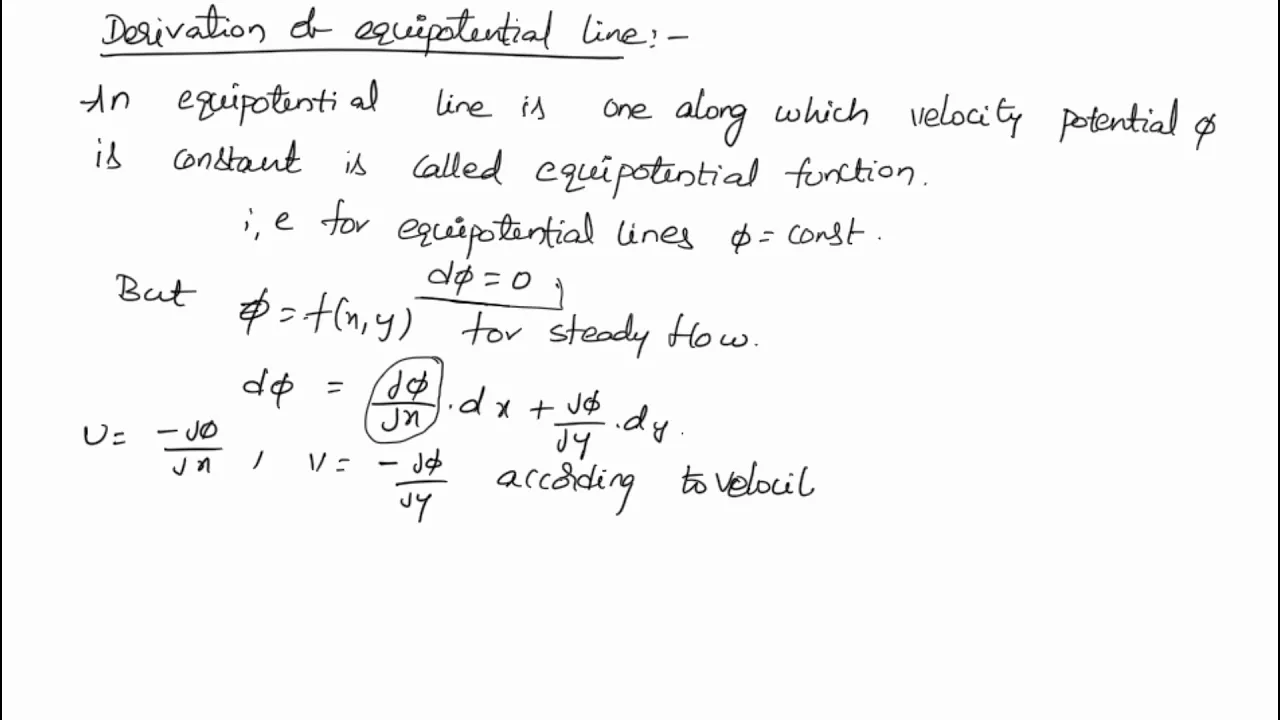 Derivation of equipotential line:-
An equipotential line is one along which velocity potential φ
is constant is called equipotential function.
i,e for equipotential lines φ = const.
dφ = 0
But φ = f(x,y) for steady flow.
dφ = ∂φ/∂x . dx + ∂φ/∂y . dy.
U = -∂φ/∂x , V = -∂φ/∂y according to velocit